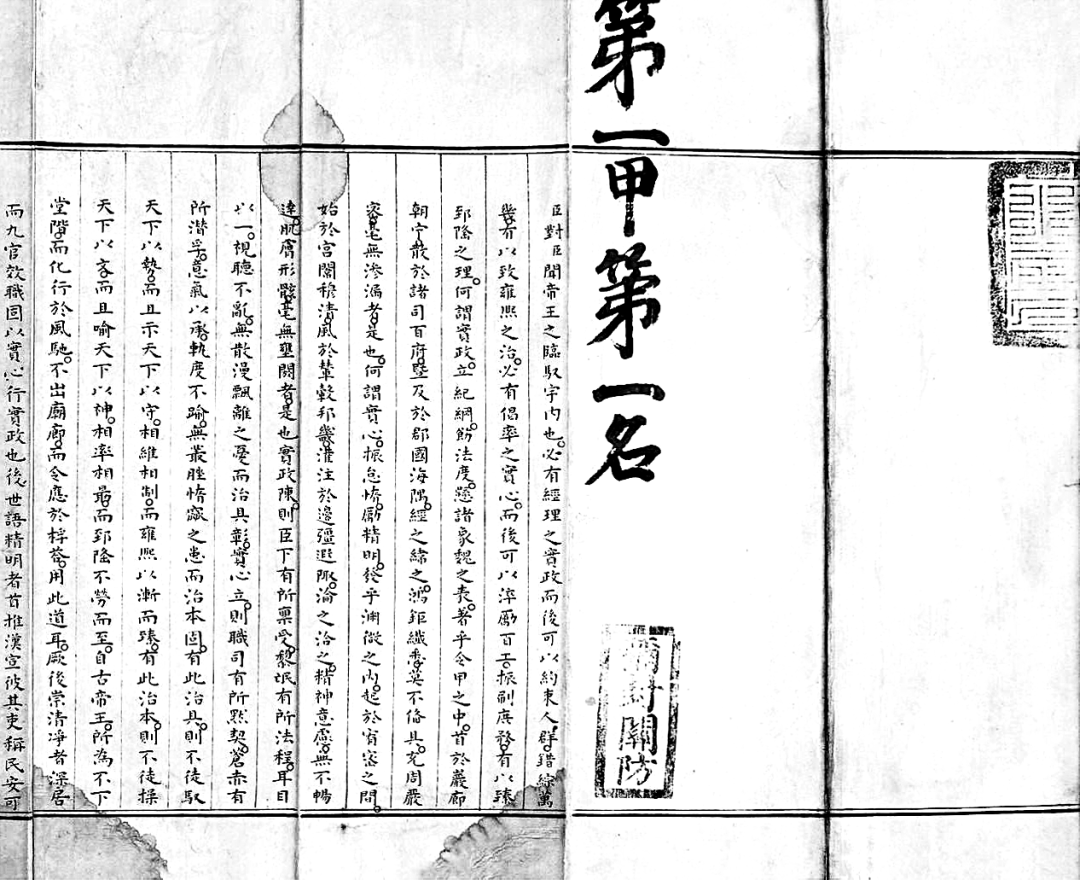 第一甲第一名
彌封關防
臣對臣聞帝王之臨馭宇內也。必有經理之實政而後可以約束人群。錯綜萬
幾。有以致雍熙之治。必有倡率之實心。而後可以淬勵百工。振刷庶務。有以臻
郅隆之理。何謂實政。立紀綱。飭法度。懸諸象魏之表。著乎令甲之中。首於巖廊
朝宁散於諸司百府。暨及於郡國海隅。經之緯之。鴻鉅纖悉。莫不備具。充周嚴
密。毫無滲漏者。是也。何謂實心。振怠惰。勵精明。發乎淵微之內。起於宥密之間。
始於宮闈穆清。風於輦轂邦畿。灌注於邊疆遐陬。淪之洽之。精神意慮。無不暢
達。肌膚形骸。毫無壅閼者。是也實政陳。則臣下有所稟受。黎氓有所法程。耳目
以一。視聽不亂。無散漫飄離之憂而治具彰。實心立。則職司有所默契。蒼赤有
所潛孚。意氣以承。軌度不踰。無叢脞惰窳之患而治本固。有此治具。則不徒馭
天下以勢。而且示天下以守。相維相制。而雍熙以漸而臻。有此治本。則不徒操
天下以文而且喻天下以神。相率相勗。而郅隆不勞而至。自古帝王。所為不下
堂階。而化行於風馳。不出廟廊。而令應於桴答。用此道耳。厥後崇清淨者深居
而九官效職固以實心行實政也後世語精明者首推漢宣彼其吏稱民安可